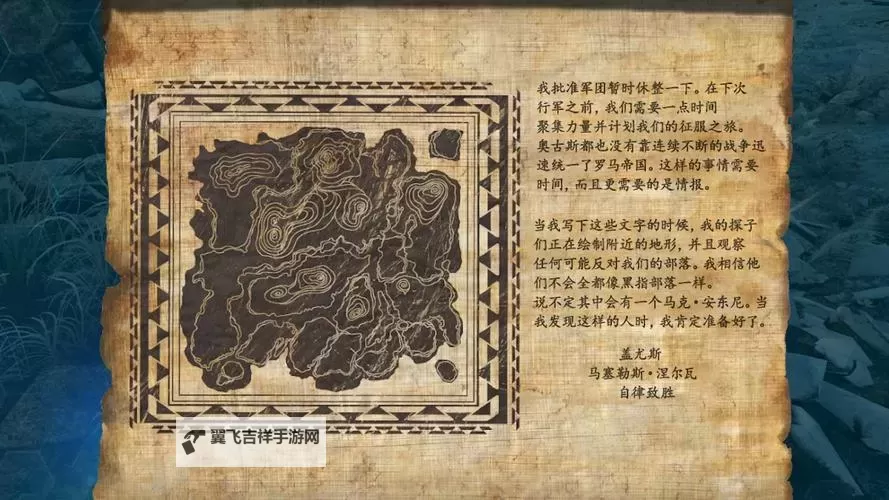 我批准军团暂时休整一下。在下次
行军之前，我们需要一点时间
聚集力量并计划我们的征服之旅。
奥古斯都也没有靠连续不断的战争迅
速统一了罗马帝国。这样的事情需要
时间，而且更需要的是情报。
当我写下这些文字的时候，我的探子
们正在绘制附近的地形，并且观察
任何可能反对我们的部落。我相信他
们不会全都像黑指部落一样。
说不定其中会有一个马克·安东尼。当
我发现这样的人时，我肯定准备好了。
盖尤斯
马塞勒斯·涅尔瓦
自律致胜
翼飞吉祥手游网